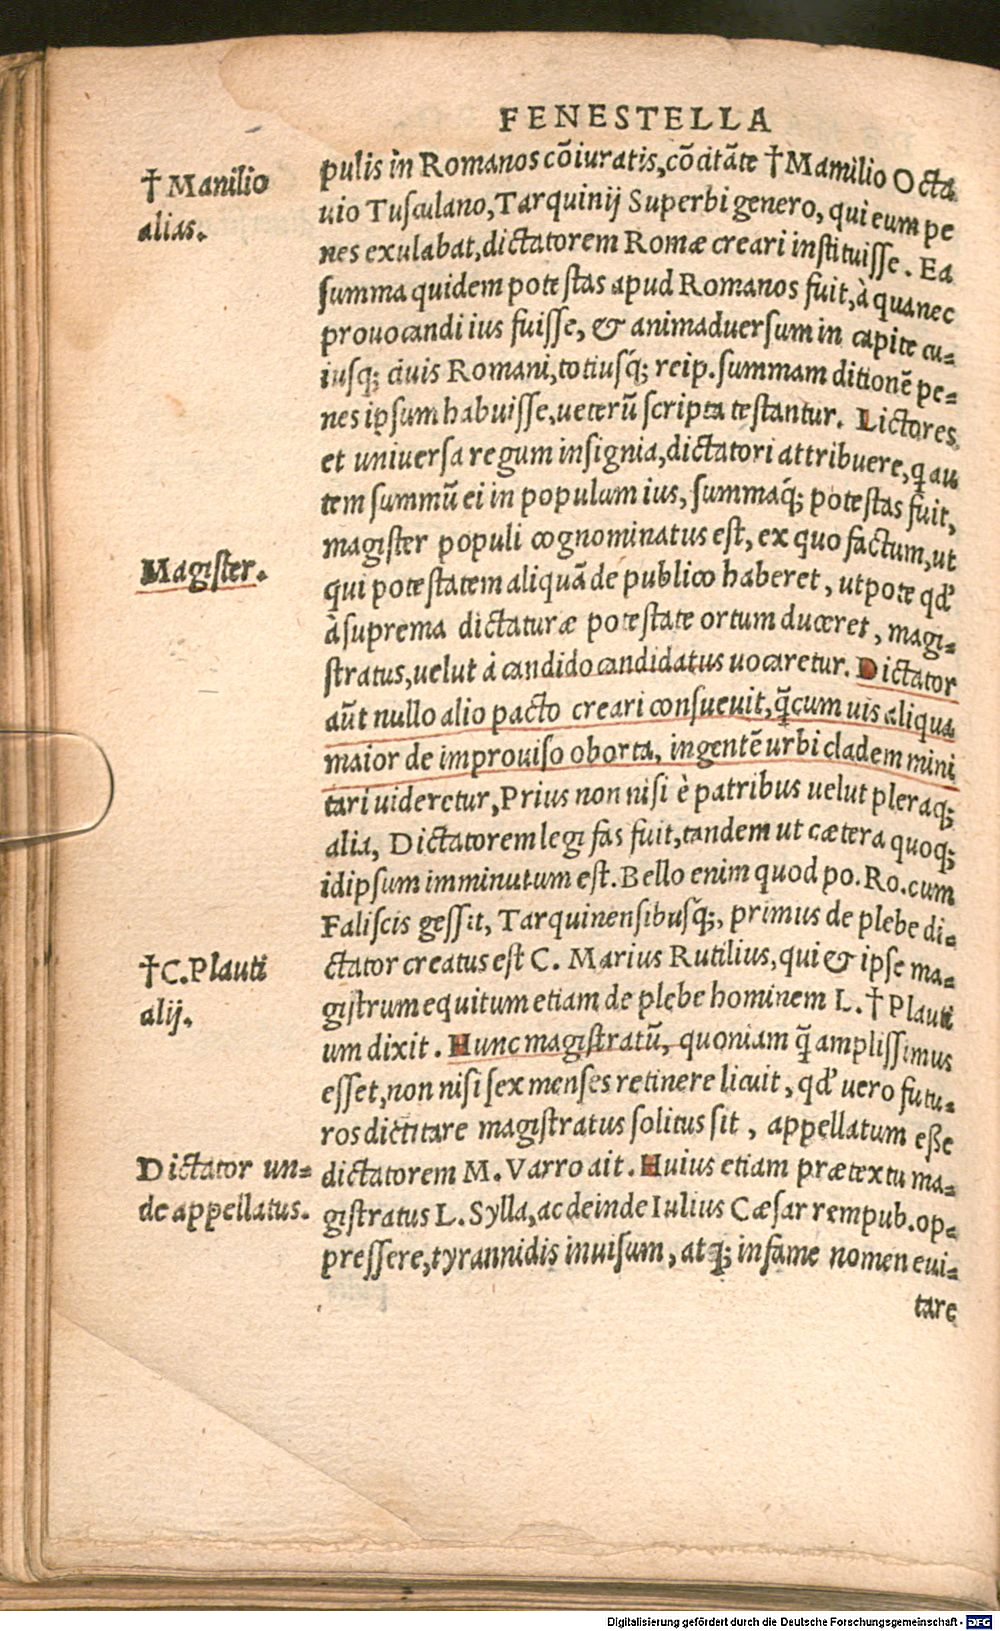 FENESTELLA
† Manilio
alias.
pulis in Romanos cōiuratis, cōcitāte † Mamilio Octa
uio Tusculano, Tarquinij Superbi genero, qui eum pe
nes exulabat, dictatorem Romæ creari instituisse. Ea
summa quidem potestas apud Romanos fuit, à qua nec
prouocandi ius fuisse, & animaduersum in capite cu-
iusq; ciuis Romani, totiusq́; reip. summam ditionē pe-
nes ipsum habuisse, ueterū scripta testantur. Lictores
et uniuersa regum insignia, dictatori attribuere, q̄ au
tem summū ei in populum ius, summaq́; potestas fuit,
magister populi cognominatus est, ex quo factum, ut
Magister.
qui potestatem aliquā de publico haberet, utpote qď
à suprema dictaturæ potestate ortum duceret, magi-
stratus, uelut à candido candidatus uocaretur. Dictator
aūt nullo alio pacto creari consueuit, q̄̃cum uis aliqua
maior de improuiso oborta, ingentē urbi cladem mini
tari uideretur, Prius non nisi è patribus uelut pleraq;
alia, Dictatorem legi fas fuit, tandem ut cætera quoq;
id ipsum imminutum est. Bello enim quod po. Ro. cum
Faliscis gessit, Tarquinensibusq́;, primus de plebe di-
ctator creatus est C. Marius Rutilius, qui & ipse ma-
† C. Plauti
alij.
gistrum equitum etiam de plebe hominem L. † Plauti
um dixit. Hunc magistratū, quoniam q̄̃ amplissimus
esset, non nisi sex menses retinere licuit, qď uero futu-
ros dictitare magistratus solitus sit, appellatum eße
Dictator un-
de appellatus.
dictatorem M. Varro ait. Huius etiam prætextu ma-
gistratus L. Sylla, ac deinde Iulius Cæsar rempub. op-
pressere, tyrannidis inuisum, atq; infame nomen eui-
tare
Digitalisierung gefördert durch die Deutsche Forschungsgemeinschaft - DFG